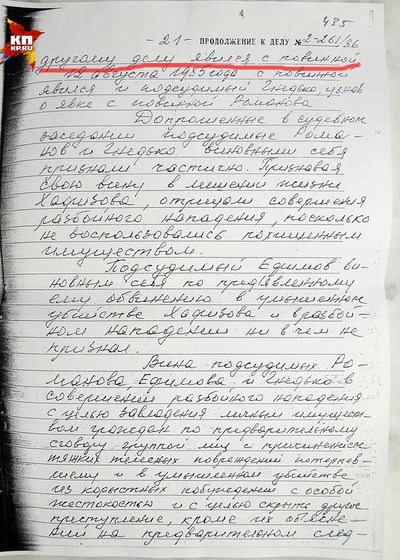 КП
KP.RU
485
-21- ПРОДОЛЖЕНИЕ К ДЕЛУ № 2-261/96
другому делу явился с повинной.
12 августа 1995 года с повинной
явился и подсудимый Гнедько, узнав
о явке с повинной Романова.
Допрошенные в судебном
заседании подсудимые Рома-
нов и Гнедько виновными себя
признали частично. Признавая
свою вину в лишении жизни
Хафизова, отрицали совершения
разбойного нападения, поскольку
не воспользовались похищенным
имуществом.
Подсудимый Ефимов ви-
новным себя по предъявленному
ему обвинению в умышленном
убийстве Хафизова и в разбой-
ном нападении ни в чем не
признал.
Вина подсудимых Ро-
манова, Ефимова и Гнедько в
совершении разбойного нападения
с целью завладения личным имущест-
вом граждан по предварительному
сговору группой лиц с причинением
тяжких телесных повреждений потерпев-
шему и в умышленном убийстве
из корыстных побуждений с особой
жестокостью и с целью скрыть другое
преступление, кроме их объясне-
ний на предварительном след-